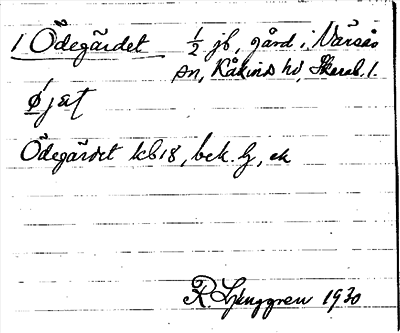 1 Ödegärdet ½ jb, gård i Värsås
sn, Kåkinds hd, Skarab. l.
ǿjæt
Ödegärdet kb18, bek. hz, ek
R Ljunggren 1930